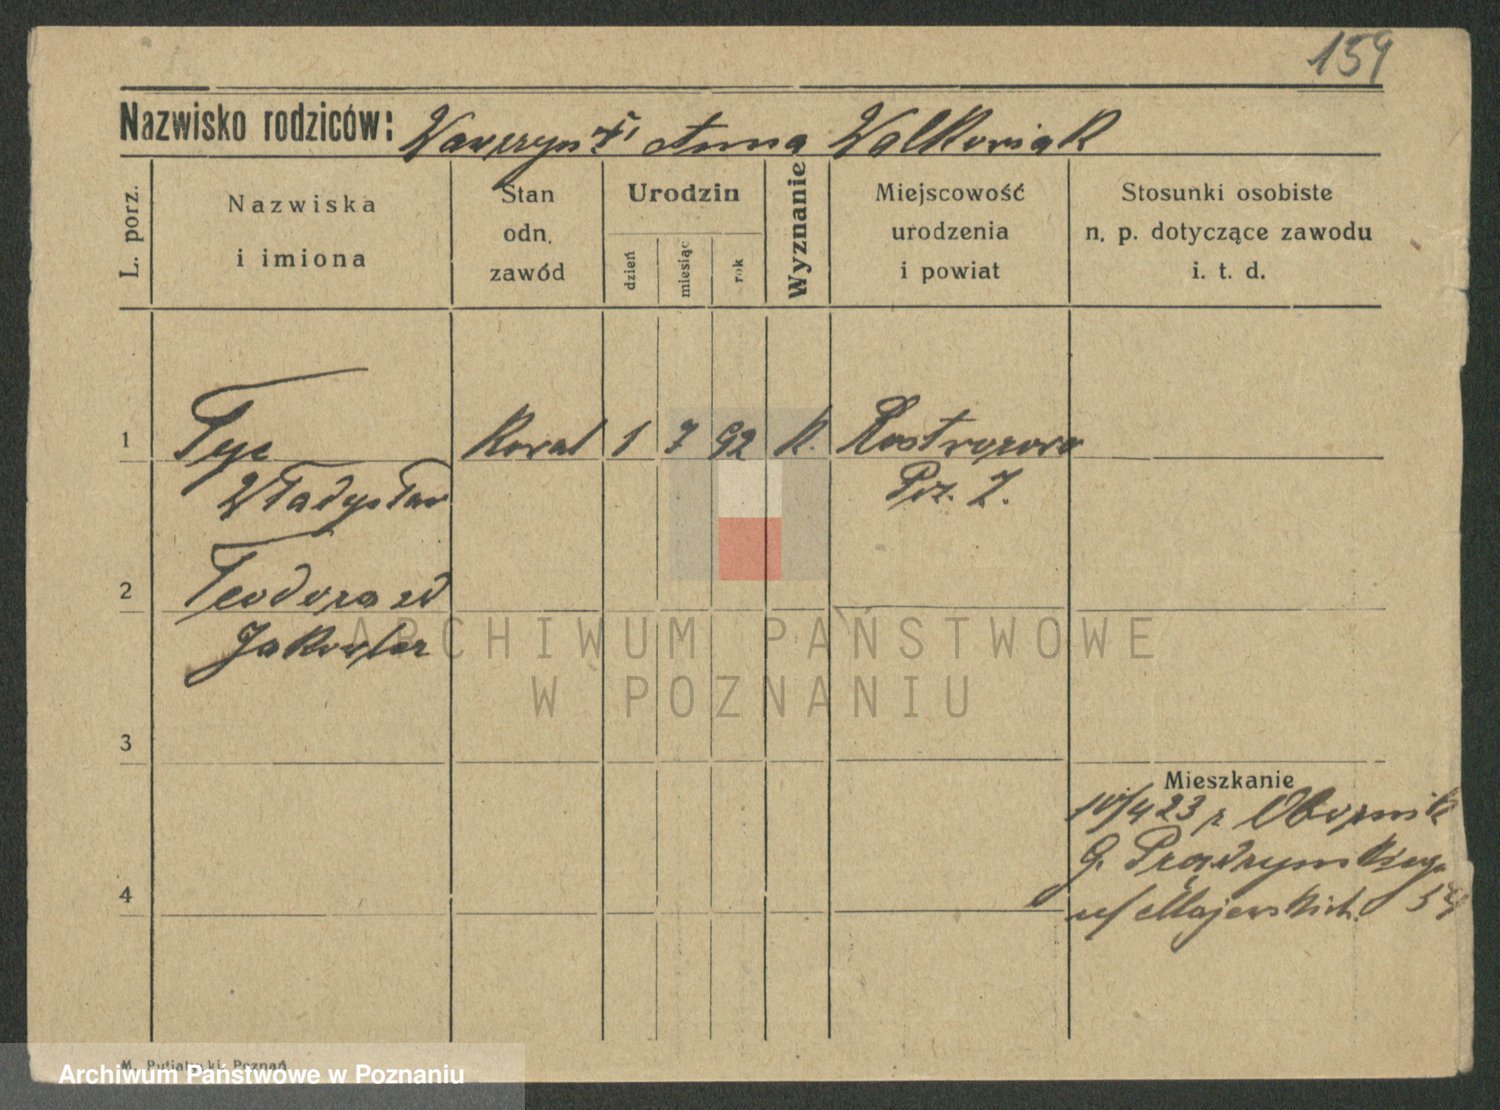 159
Nazwisko rodziców: Wawrzyn † i Anna Walkowiak
L. porz.
Nazwiska
i imiona
Stan
odn.
zawód
Urodzin
dzień
miesiąc
rok
Wyznanie
Miejscowość
urodzenia
i powiat
Stosunki osobiste
n. p. dotyczące zawodu
i. t. d.
1
Tyc
Kowal
1
7
92
k.
Władysław
Poz. Z.
2
Teodora
3
Mieszkanie
10/4 23 z Obornik
G. Prądzyńskiego
54
4
u/ Majerskich
M. Putiatycki, Poznań
ARCHIWUM PAŃSTWOWE
W POZNANIU
Archiwum Państwowe w Poznaniu